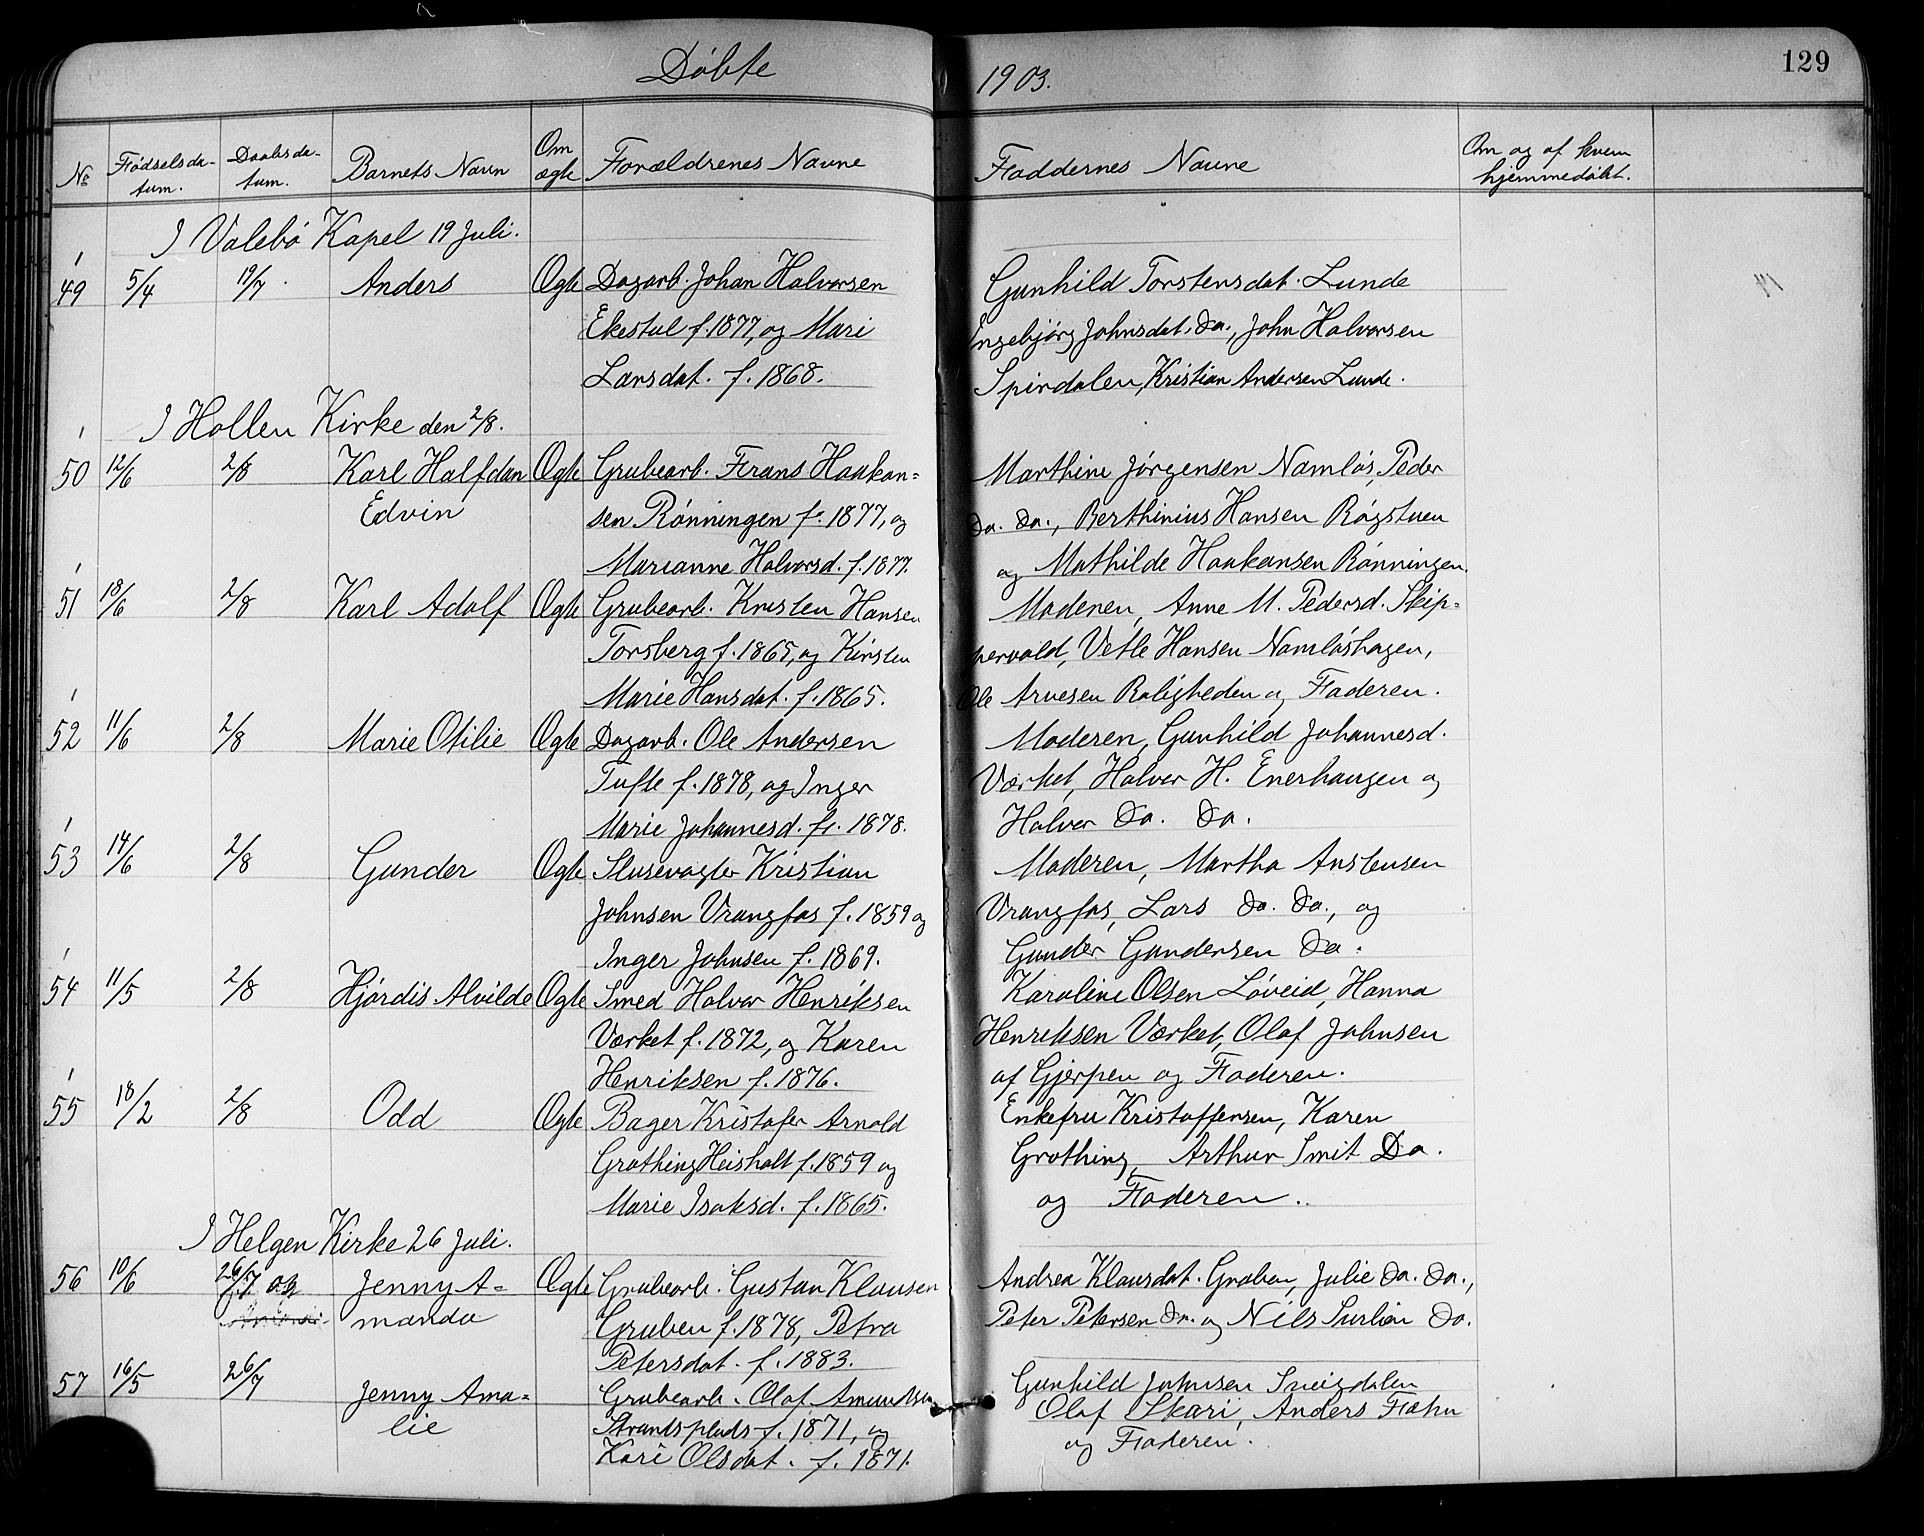 129
Døbte 1903.
No Fødselsdatum. Daabsdatum. Barnets Navn Om ægte Forældrenes Navne Faddernes Navne Om og af hvem hjemmedøbt.
I Valebø Kapel 19 Juli.
49 5/4 19/7 Anders Ægte Dagarb. Johan Halvorsen Gunhild Torstensdat. Lunde
Ekestul f. 1877, og Mari Ingebjørg Johnsdat. Do., John Halvorsen
Larsdat. f. 1868. Spirdalen, Kristian Andersen Lunde.
I Hollen Kirke den 2/8.
50 12/6 2/8 Karl Halfdan Ægte Grubearb. Frans Haakan= Marthine Jørgensen Namløs, Peder
Edvin sen Rønningen f. 1877, og Do. Do., Berthinius Hansen Røgstuen
Marianne Halvorsd. f. 1877. og Mathilde Haakansen Rønningen.
51 18/6 2/8 Karl Adolf Ægte Grubearb. Kristen Hansen Moderen, Anne M. Pedersd. Skip=
Torsberg f. 1865, og Kirsten pervold, Vetle Hansen Namløshagen,
Marie Hansdat. f. 1865. Ole Arvesen Roligheden og Faderen.
52 11/6 2/8 Marie Otilie Ægte Dagarb. Ole Andersen Moderen, Gunhild Johannesd.
Tufte f. 1878, og Inger Værket, Halvor H. Enerhaugen og
Marie Johannesd. f. 1878. Halvor Do. Do.
53 14/6 2/8 Gunder Ægte Slusevogter Kristian Moderen, Martha Anstensen
Johnsen Vrangfos f. 1859 og Vrangfos, Lars Do. Do., og
Inger Johnsen f. 1869. Gunder Gundersen Do.
54 11/5 2/8 Hjørdis Alvilde Ægte Smed Halvor Henriksen Karoline Olsen Løveid, Hanna
Værket f. 1872, og Karen Henriksen Værket, Olaf Johnsen
Henriksen f. 1876. af Gjerpen og Faderen.
55 18/2 2/8 Odd Ægte Bager Kristofer Arnold Enkefru Kristoffersen, Karen
Grothing Heisholt f. 1859 og Grothing, Arthur Smit Do.
Marie Isaksd. f. 1865. og Faderen.
I Helgen Kirke 26 Juli.
56 10/6 26/7 og Jenny A= Ægte Grubearb. Gustav Klausen Andrea Klausdat. Gruben, Julie Do. Do.,
manda Gruben f. 1878, Petra Peter Petersen Do. og Nils Surlien Do.
Petersdat. f. 1883.
57 16/5 26/7 Jenny Ama= Grubearb. Olaf Amundsen Gunhild Johnsen Sneigdalen
lie Strandsplads f. 1871, og Olaf Skari, Anders Fæhn
Kari Olsdat. f. 1871. og Faderen.